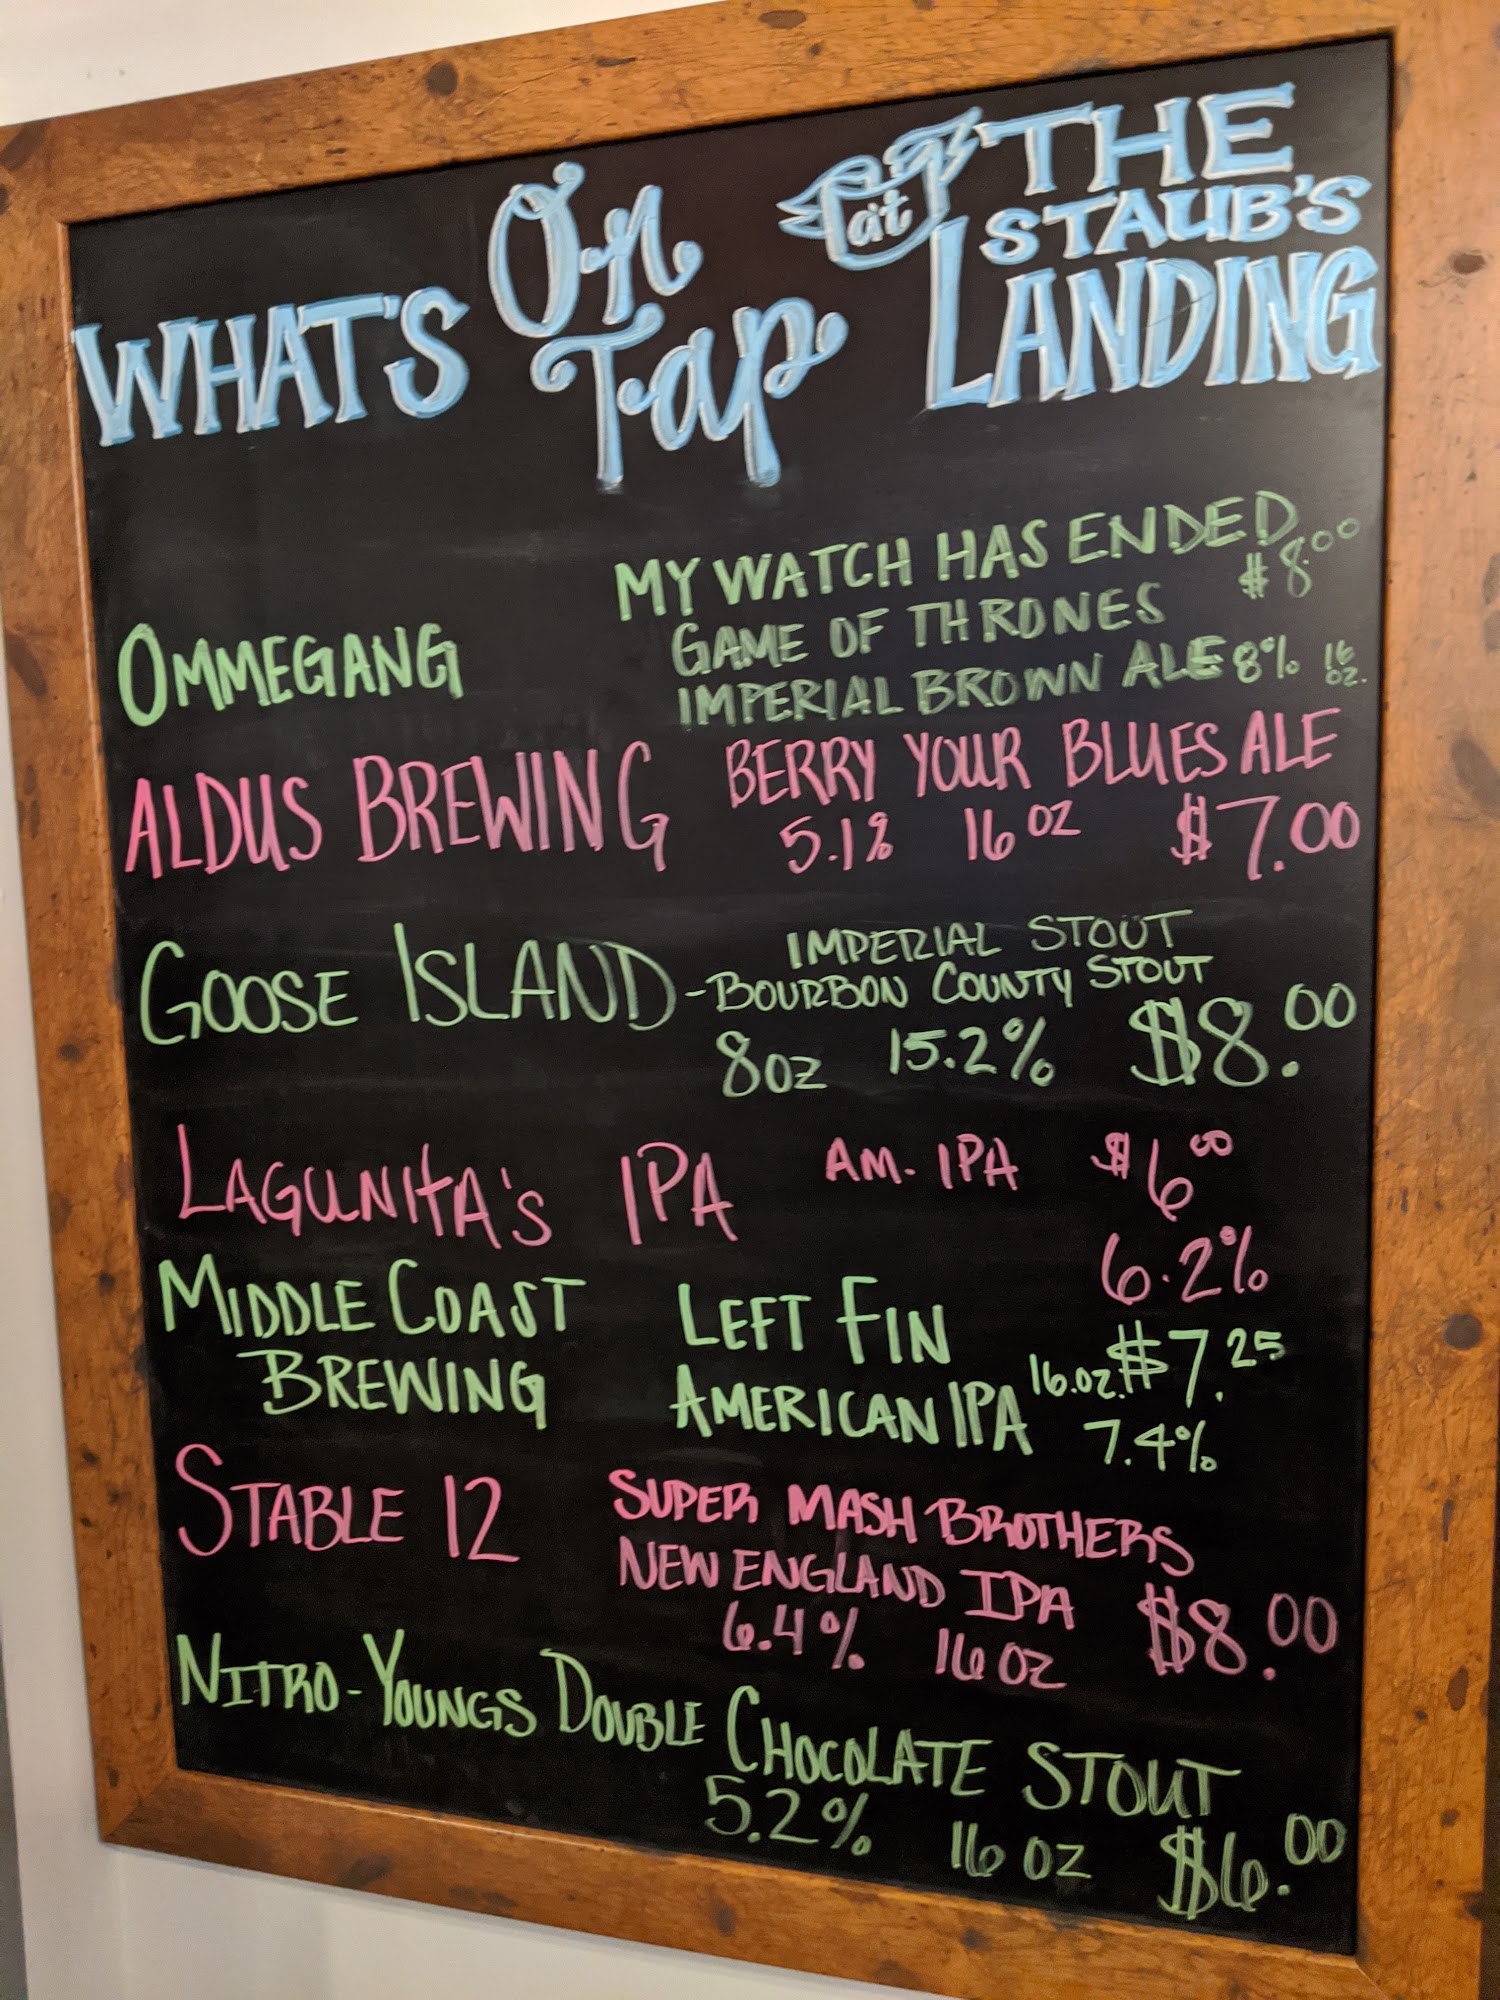 WHAT'S On Tap at THE STAUB'S LANDING
MY WATCH HAS ENDED
OMMEGANG GAME OF THRONES $8.00
IMPERIAL BROWN ALE 8% 16 OZ.
ALDUS BREWING BERRY YOUR BLUES ALE
5.1% 16 OZ $7.00
IMPERIAL STOUT
GOOSE ISLAND - BOURBON COUNTY STOUT
8 OZ 15.2% $8.00
LAGUNITA'S IPA AM. IPA $6.00
6.2%
MIDDLE COAST LEFT FIN
BREWING AMERICAN IPA 16.OZ. $7.25
7.4%
STABLE 12 SUPER MASH BROTHERS
NEW ENGLAND IPA
6.4% 16 OZ $8.00
NITRO - YOUNGS DOUBLE CHOCOLATE STOUT
5.2% 16 OZ $6.00